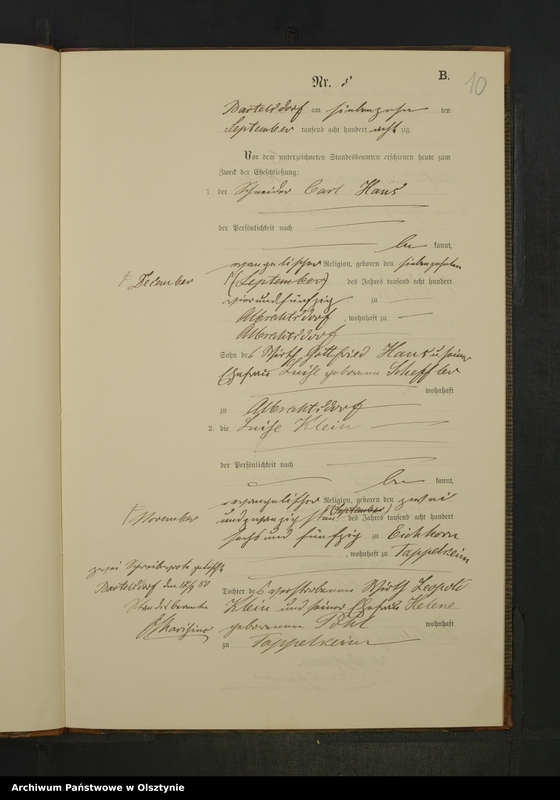 Nr. 5
B.
10
Bartelsdorf am siebenzehn ten
September tausend acht hundert acht zig
Vor dem unterzeichneten Standesbeamten erschienen heute zum
Zweck der Eheschließung:
1. der Schneider Carl Hans
der Persönlichkeit nach
be kannt,
evangelischer Religion, geboren den siebenzehnten
December
(September) des Jahres tausend acht hundert
vierundfünfzig zu
Albrechtsdorf, wohnhaft zu
Albrechtsdorf
Sohn des Wirth Gottfried Hans u. seiner
Ehefrau Luise geborenen Scheffler
wohnhaft
zu Albrechtsdorf
2. die Luise Klein
der Persönlichkeit nach
be kannt,
evangelischer Religion, geboren den zwei
November
undzwanzigsten (September) des Jahres tausend acht hundert
sechs und fünfzig zu Eichhorn
, wohnhaft zu Tappelkeim
zwei Schreibworte gelöscht
Bartelsdorf den 18/9 80
Standesbeamte
Tochter des verstorbenen Wirth Leopold
Klein und seiner Ehefrau Helene
geborenen Pohl wohnhaft
zu Tappelkeim
Archiwum Państwowe w Olsztynie